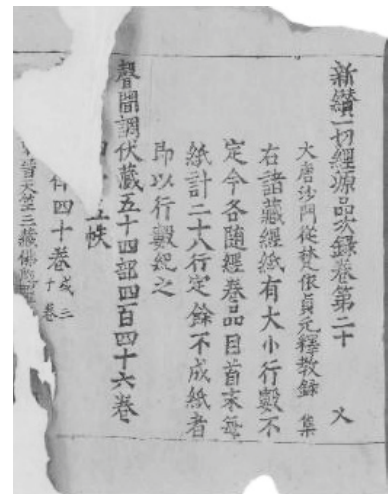 新纘一切經源品次錄卷第二十 乂
大唐沙門從梵依貞元釋教錄 集
右諸藏經紙有大小行數不
定今各隨經卷品目首末每
紙計二十八行定餘不成紙者
即以行數紀之
聲聞調伏藏五十四部四百四十六卷
帙
四十卷 或三十卷
天竺三藏佛